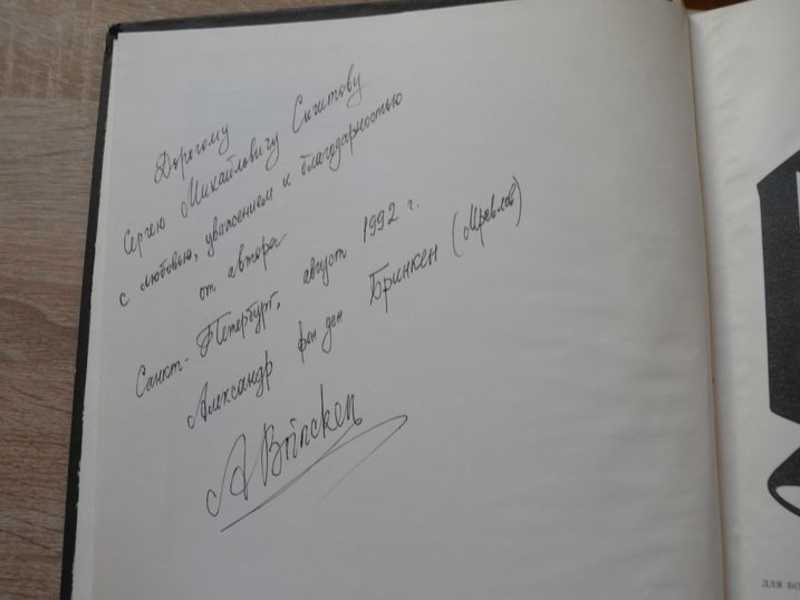 Дорогому
Сергею Михайловичу Сигитову
с любовью, уважением и благодарностью
от автора
Санкт-Петербург, август 1992 г.
Александр фон ден Бринкен
ABrincken
для бо